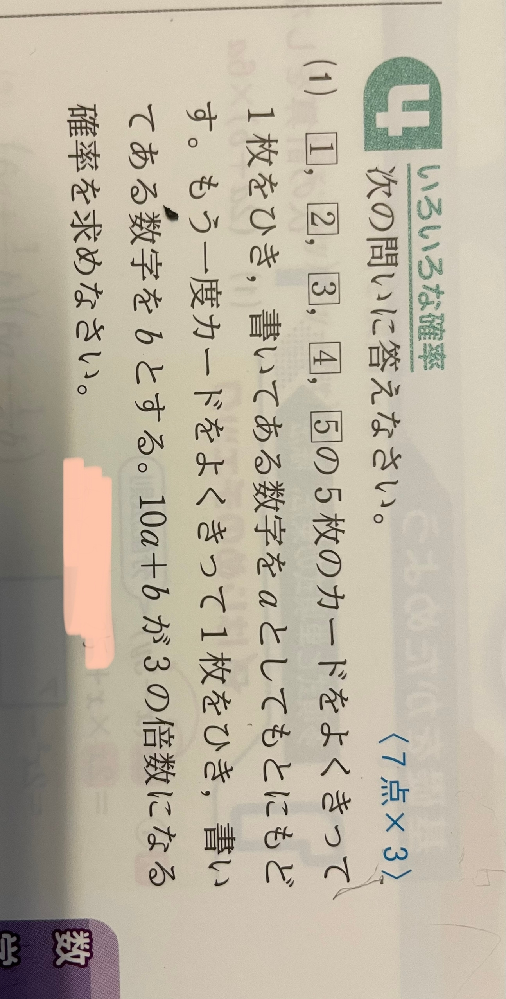 4
いろいろな確率
次の問いに答えなさい。
〈7点×3〉
(1) 1, 2, 3, 4, 5の5枚のカードをよくきって
1枚をひき，書いてある数字をaとしてもとにもど
す。もう一度カードをよくきって1枚をひき，書い
てある数字をbとする。10a+bが3の倍数になる
確率を求めなさい。
数
学